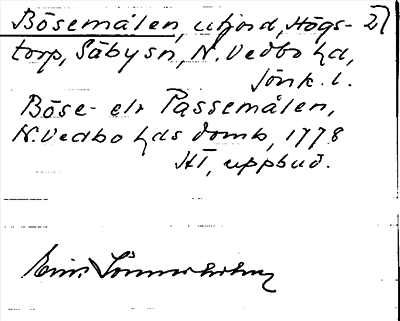 Bösemålen, utjord, Högs- 21
torp, Säby sn, N. Vedbo hd,
Jönk. l.
Böse- elr Passemålen,
N. Vedbo hds domb, 1778
HT, uppbud.